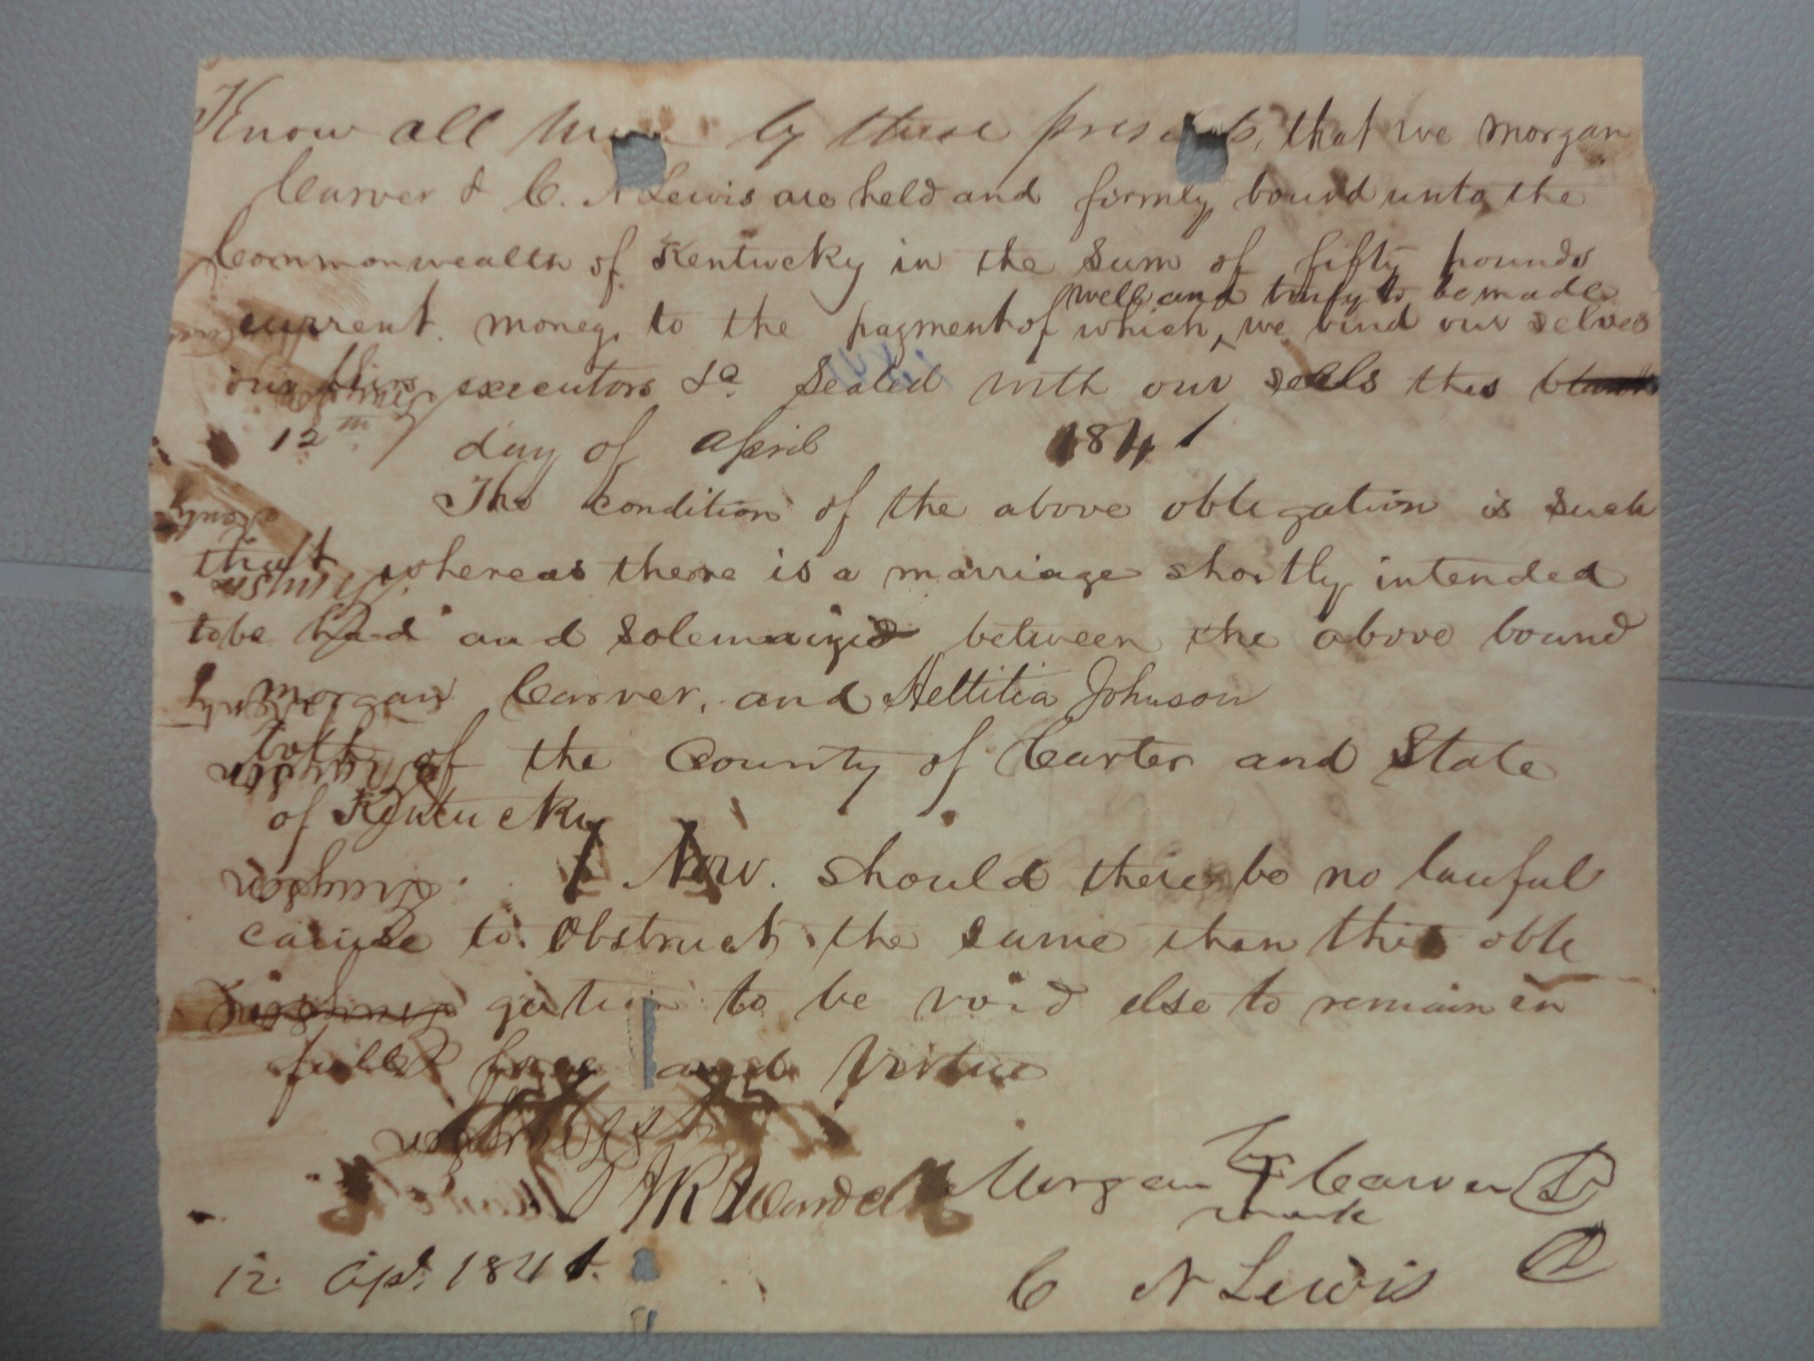 Know all men by these presents, that we Morgan
Carver & C. N Lewis are held and firmly bound unto the
Commonwealth of Kentucky in the Sum of fifty pounds
well and truly to be made
current money, to the payment of which, we bind our selves
our heirs executors &c. Sealed with our seals this
12th day of April 1841
The condition of the above obligation is such
that whereas there is a marriage shortly intended
to be had and Solemnized between the above bound
Morgan Carver, and Hettitia Johnson
both of the County of Carter and State
of Kentucky
Now. should there be no lawful
cause to obstruct the same then this obli
gation to be void else to remain in
full force and virtue
Morgan his Carver
mark
J R Ward
12. Apl. 1841.
C N Lewis